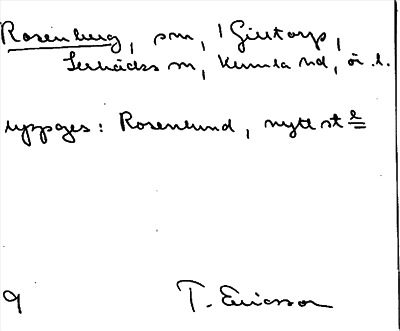 Rosenberg, sm, 1 Girtorp,
Lerbäcks sn, Kumla hd, ö.l.
uppges: Rosenlund, nytt st
9 T. Ericsson